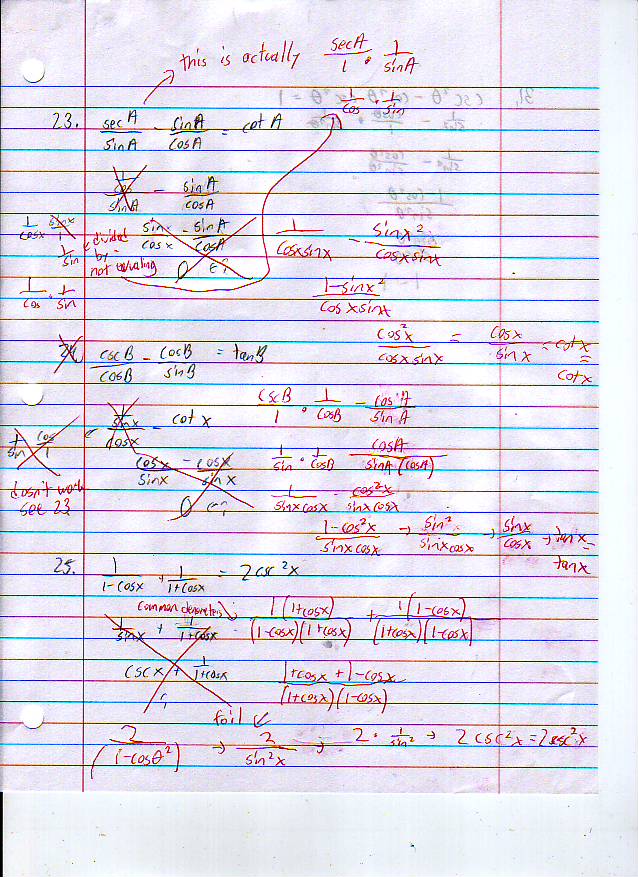 this is actually secA/1 · 1/sinA
23. secA/sinA - sinA/cosA = cot A
1/cos · 1/sin
1/cos / sinA - sinA/cosA
1/cosx sinx/1
1/sin
divided by - not equaling
sinx/cosx - sinA/cosA
0
1/cosxsinx - sinx²/cosxsinx
1/cos · 1/sin
1-sinx²/cosxsinx
cos²x/cosxsinx = cosx/sinx = cotx = cotx
24. cscB/cosB - cosB/sinB = tanB
cscB/1 · 1/cosB - cosA/sinA
1/sinx / cosx - cot x
1/sin cos/1
dosn't work see 23
cosx/sinx - cosx/sinx
0
1/sin · 1/cosB cosA/sinA (cosA)
1/sinxcosx - cos²x/sinxcosx
1-cos²x/sinxcosx → sin²/sinxcosx → sinx/cosx → tanx = tanx
25. 1/1-cosx + 1/1+cosx = 2csc²x
common denometers:
1/sinx + 1/1+cosx
1(1+cosx)/(1-cosx)(1+cosx) + 1(1-cosx)/(1+cosx)(1-cosx)
cscx + 1/1+cosx
1+cosx+1-cosx/(1+cosx)(1-cosx)
foil
2/(1-cosθ²) → 2/sin²x → 2 · 1/sin² → 2csc²x = 2csc²x